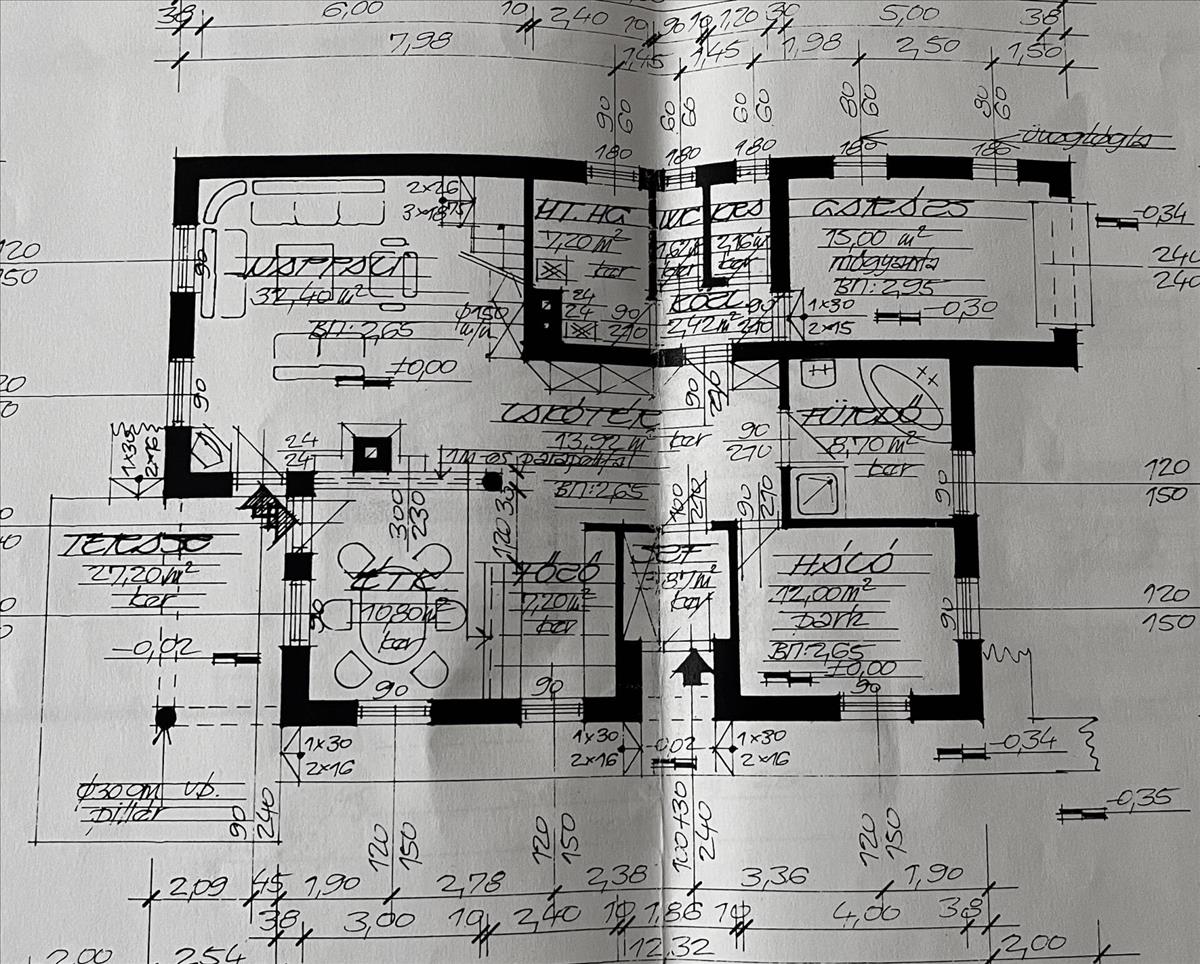 38 6,00 10 2,40 10 90 10 1,20 30 5,00 38
7,98 1,45 1,45 1,98 2,50 1,50
90 60 60 60 60 60 80 60 90 60
180 180 180 180 180
üvegtégla
2x26
3x18
HT. HG
7,20 m²
ker
WC
1,62 m²
ker
2,16 m²
ker
GARÁZS
15,00 m²
műgyanta
BM: 2,95
-0,34
240
240
120
150
90
NAPPALI
32,40 m²
BM: 2,65
±0,00
Φ150
24
24
90
210
KÖZL
2,42 m²
90
210
1x30
2x15
-0,30
90
1x30
2x16
24
24
90
210
13,92 m²
ker
1m-es parapetfal
BM: 2,65
90
210
FÜRDŐ
8,70 m²
ker
90
120
150
300
230
120
30
100
210
90
210
TERASZ
27,20 m²
ker
-0,02
ÉTK
10,80 m²
ker
90
FŐZŐ
7,20 m²
ker
ker
HÁLÓ
12,00 m²
park
BM: 2,65
±0,00
90
120
150
90
90
90
1x30
2x16
1x30
2x16
-0,02
1x30
2x16
-0,34
-0,35
Φ30 cm v.b.
pillér
90
240
120
150
120
150
100+30
240
120
150
2,09 45 1,90 2,78 2,38 3,36 1,90
38 3,00 10 2,40 10 1,86 10 4,00 38
2,00 2,54 12.32 2,00